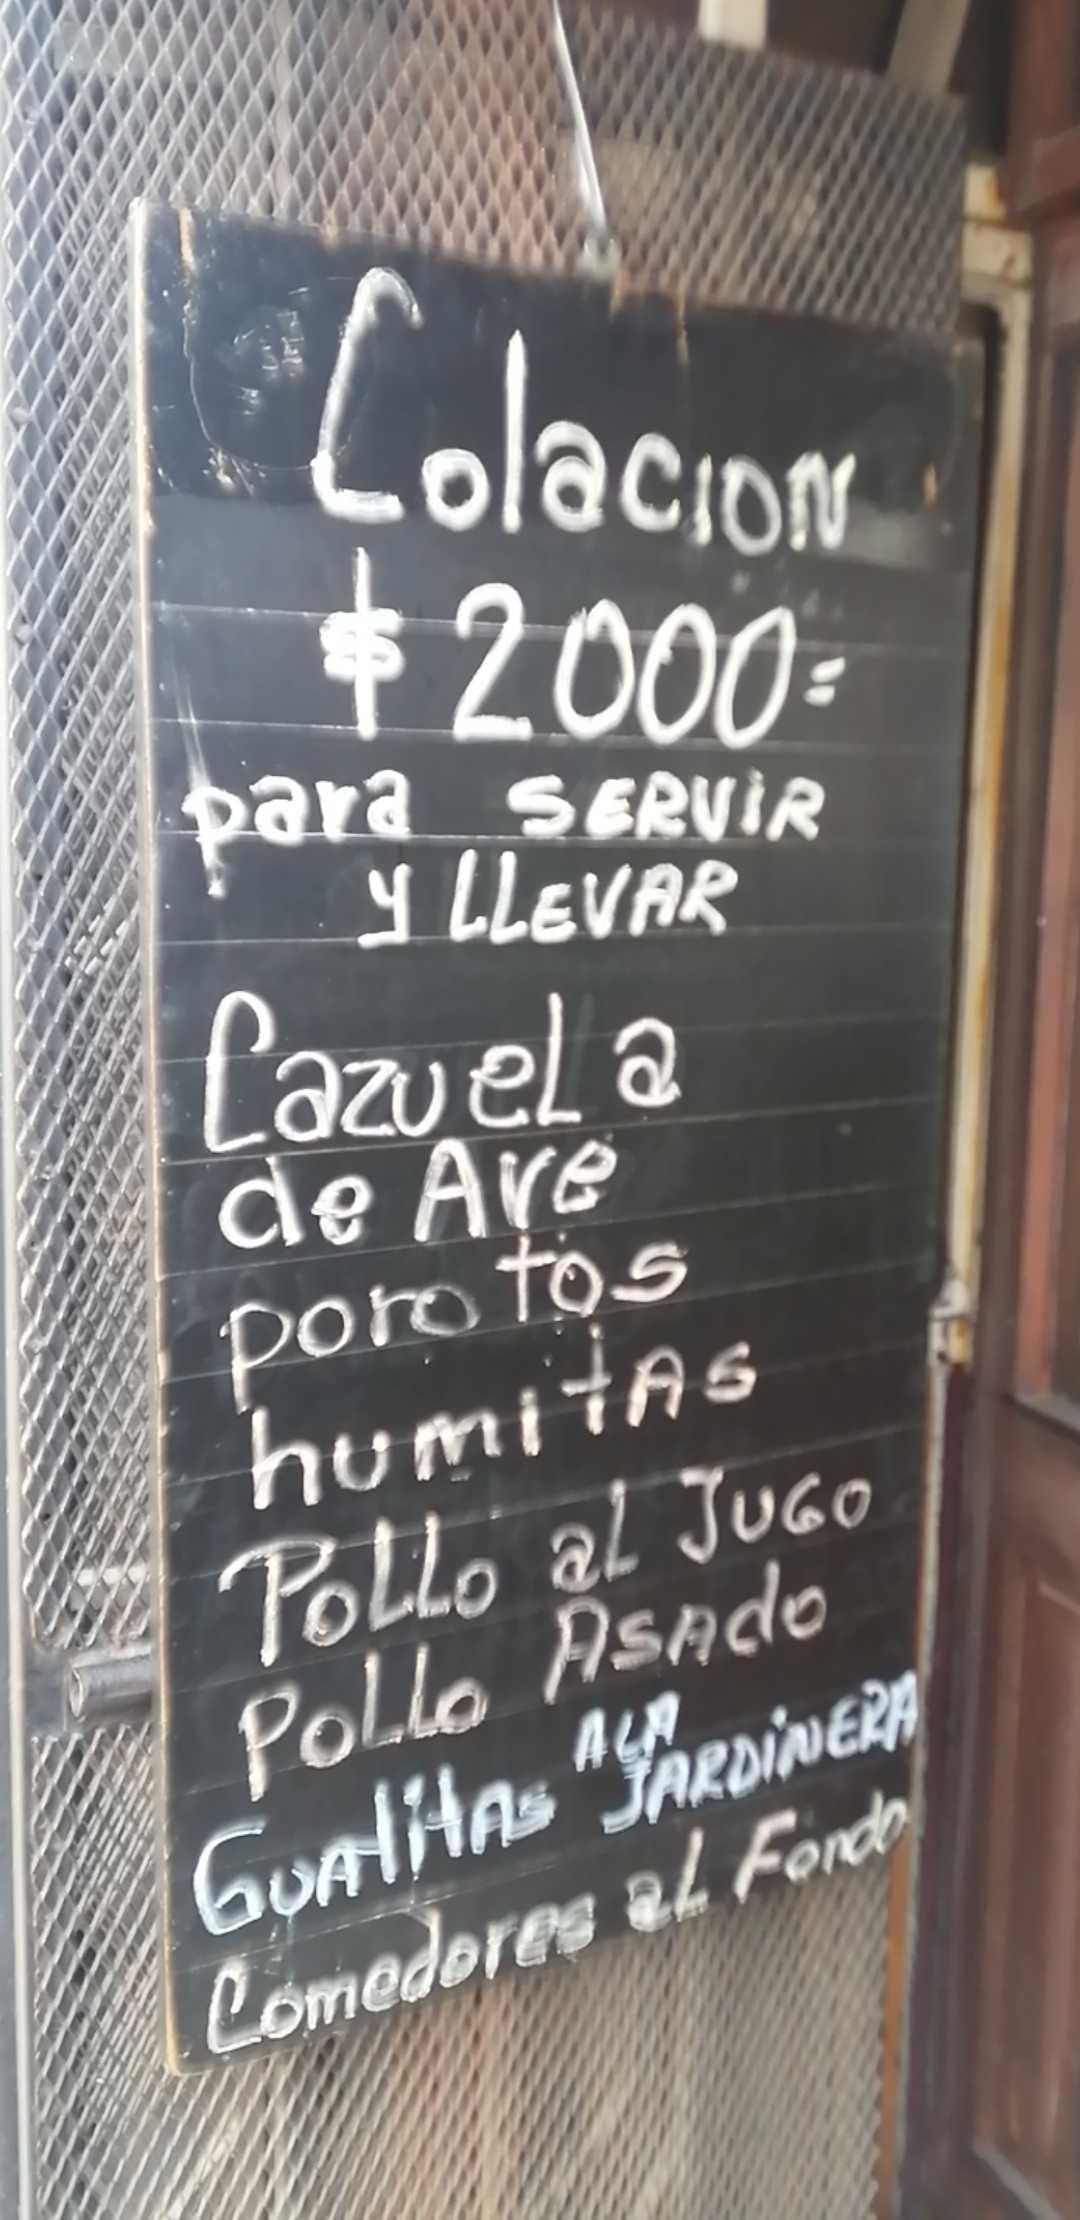 Colacion
$2000=
para SERVIR
y LLEVAR
Cazuela
de Ave
porotos
humitas
Pollo al Jugo
Pollo Asado
Guatitas A LA JARDINERA
Comedores al Fondo